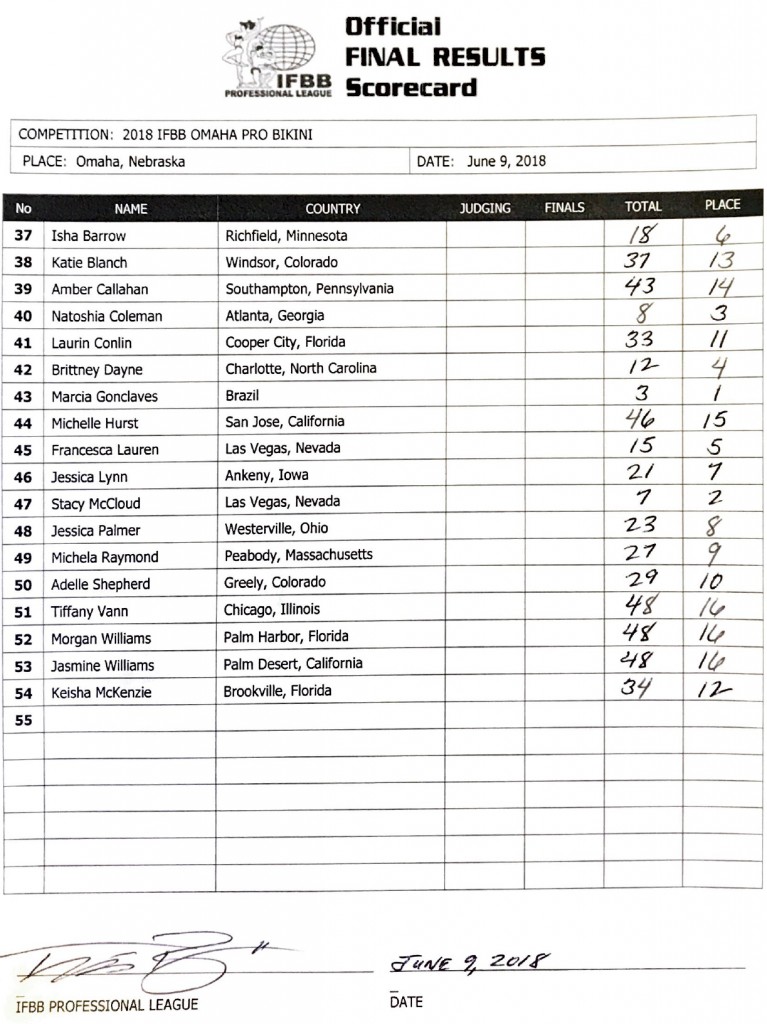 Official
FINAL RESULTS
Scorecard
IFBB
PROFESSIONAL LEAGUE
COMPETITION: 2018 IFBB OMAHA PRO BIKINI
PLACE: Omaha, Nebraska DATE: June 9, 2018
No NAME COUNTRY JUDGING FINALS TOTAL PLACE
37 Isha Barrow Richfield, Minnesota 18 6
38 Katie Blanch Windsor, Colorado 37 13
39 Amber Callahan Southampton, Pennsylvania 43 14
40 Natoshia Coleman Atlanta, Georgia 8 3
41 Laurin Conlin Cooper City, Florida 33 11
42 Brittney Dayne Charlotte, North Carolina 12 4
43 Marcia Gonclaves Brazil 3 1
44 Michelle Hurst San Jose, California 46 15
45 Francesca Lauren Las Vegas, Nevada 15 5
46 Jessica Lynn Ankeny, Iowa 21 7
47 Stacy McCloud Las Vegas, Nevada 7 2
48 Jessica Palmer Westerville, Ohio 23 8
49 Michela Raymond Peabody, Massachusetts 27 9
50 Adelle Shepherd Greely, Colorado 29 10
51 Tiffany Vann Chicago, Illinois 48 16
52 Morgan Williams Palm Harbor, Florida 48 16
53 Jasmine Williams Palm Desert, California 48 16
54 Keisha McKenzie Brookville, Florida 34 12
55
JUNE 9, 2018
IFBB PROFESSIONAL LEAGUE DATE